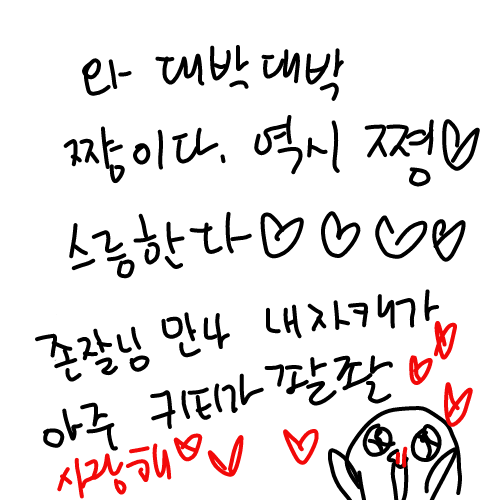 와 대박대박
쨩이다. 역시 쪙♡
스릉한다♡♡♡♡
존잘님 만나 내자캐가
아주 귀티가 좔좔♡♡
사랑해♡♡♡♡